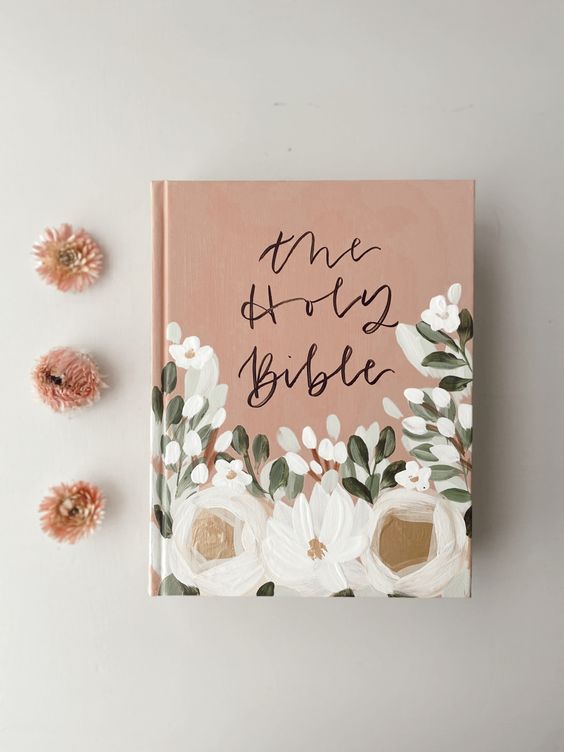 the
Holy
Bible